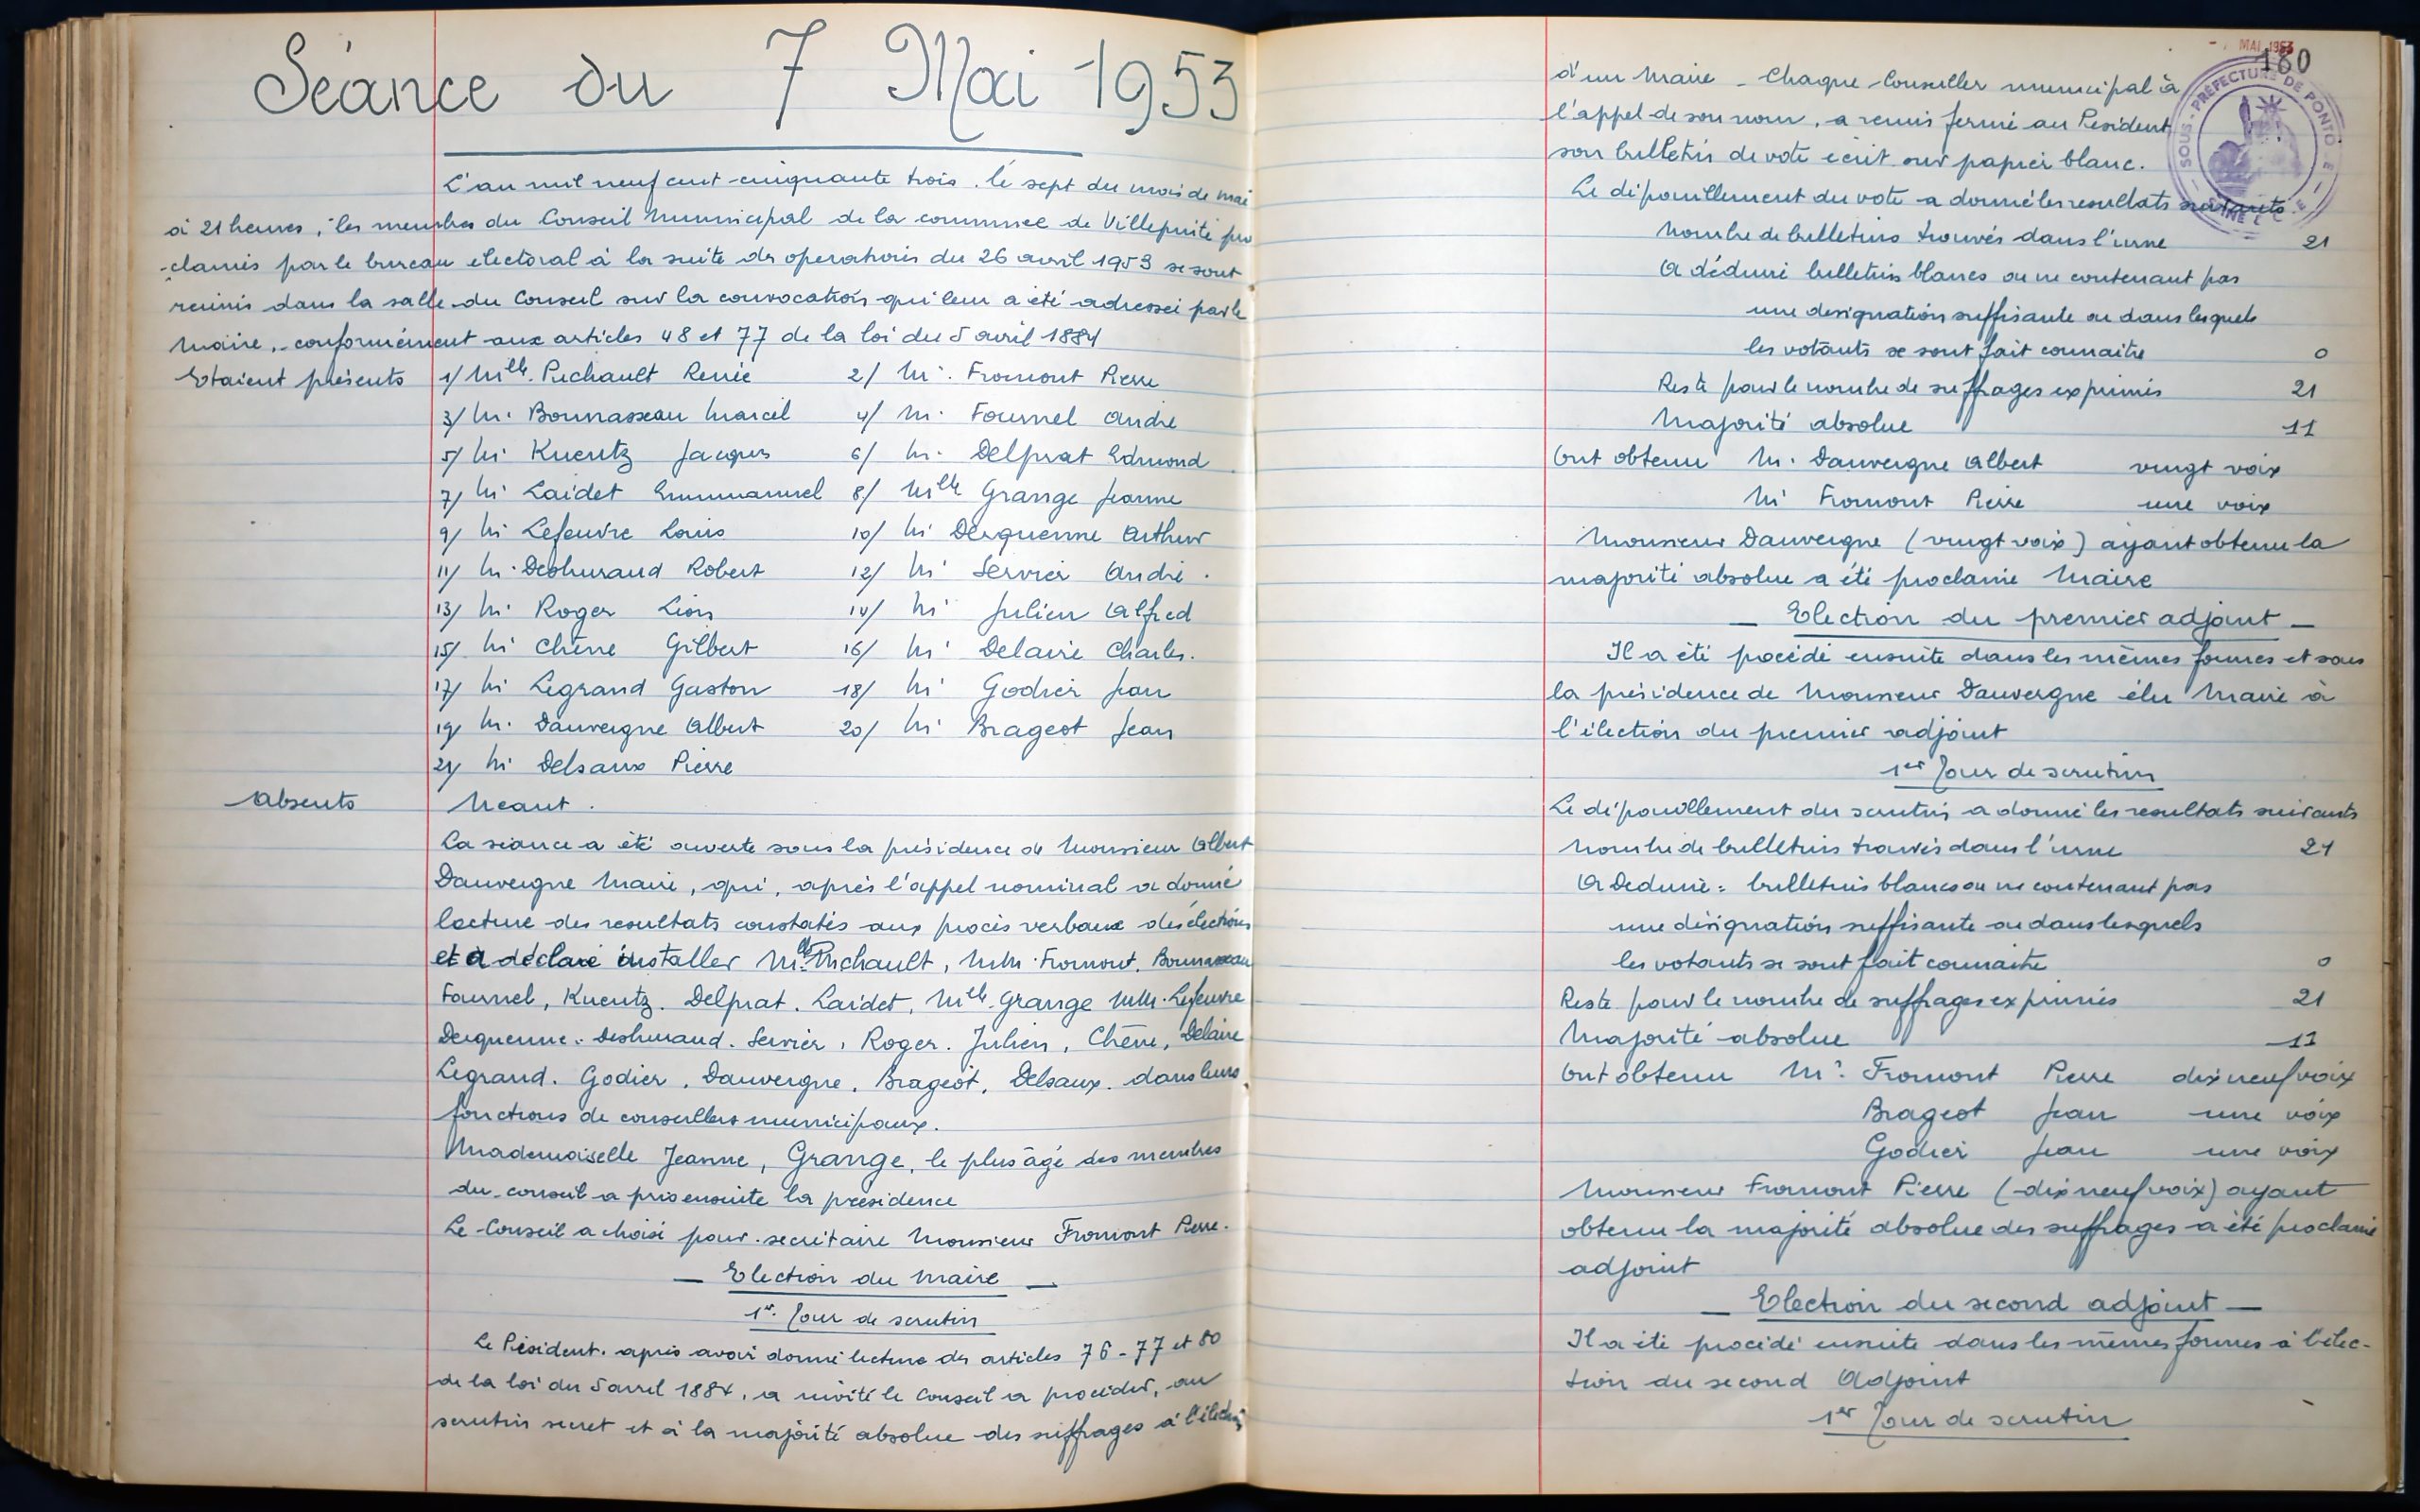 Séance du 7 Mai 1953
L'an mil neuf cent cinquante trois, le sept du mois de mai
à 21 heures, les membres du Conseil Municipal de la commune de Villepinte pro
-clamés par le bureau electoral à la suite des operations du 26 avril 1953 se sont
reunis dans la salle du Conseil sur la convocation qui leur a été adressée par le
Maire, conformément aux articles 48 et 77 de la loi du 5 avril 1884
Etaient présents 1/ Mlle. Puchault Renée 2/ M. Fromont Pierre
3/ M. Bonnasseau Marcel 4/ M. Fournel André
5/ M. Kuentz Jacques 6/ M. Delprat Edmond
7/ M. Laidet Emmanuel 8/ Mlle Grange Jeanne
9/ M. Lefeuvre Louis 10/ M. Derquenne Arthur
11/ M. Deshuraud Robert 12/ M. Servier André.
13/ M. Roger Léon 14/ M. Julien Alfred
15/ M. Chêne Gilbert 16/ M. Delaire Charles.
17/ M. Legrand Gaston 18/ M. Godier Jean
19/ M. Dauvergne Albert 20/ M. Brageot Jean
21/ M. Delsaux Pierre
Absents Neant.
La séance a été ouverte sous la présidence de Monsieur Albert
Dauvergne Maire, qui, après l'appel nominal a donné
lecture des resultats constatés aux procès verbaux des élections
et a déclaré installer Mlle Puchault, MM. Fromont, Bonnasseau
Fournel, Kuentz. Delprat. Laidet, Mlle. Grange MM. Lefeuvre
Derquenne. Deshuraud. Servier, Roger. Julien, Chêne, Delaire
Legrand. Godier, Dauvergne, Brageot, Delsaux. dans leurs
fonctions de conseillers municipaux.
Mademoiselle Jeanne, Grange, le plus âgé des membres
du conseil a pris ensuite la présidence
Le Conseil a choisi pour secrétaire Monsieur Fromont Pierre.
— Election du Maire —
1er. Tour de scrutin
Le Président. après avoir donné lecture des articles 76-77 et 80
de la loi du 5 avril 1884, a invité le Conseil a procéder, au
scrutin secret et à la majorité absolue des suffrages à l'élection
- 7 MAI 1953
180
SOUS-PRÉFECTURE DE PONTOISE
d'un Maire - Chaque Conseiller municipal à
l'appel de son nom, a remis fermé au Président
son bulletin de vote écrit sur papier blanc.
Le dépouillement du vote a donné les resultats suivants
Nombre de bulletins trouvés dans l'urne 21
A déduire bulletins blancs ou ne contenant pas
une designation suffisante ou dans lesquels
les votants se sont fait connaitre 0
Reste pour le nombre de suffrages exprimés 21
Majorité absolue 11
Ont obtenu M. Dauvergne Albert vingt voix
M. Fromont Pierre une voix
Monsieur Dauvergne (vingt voix) ayant obtenu la
majorité absolue a été proclamé Maire
— Election du premier adjoint —
Il a été procédé ensuite dans les mêmes formes et sous
la présidence de Monsieur Dauvergne élu Maire à
l'élection du premier adjoint
1er Tour de scrutin
Le dépouillement du scrutin a donné les resultats suivants
Nombre de bulletins trouvés dans l'urne 21
A Deduire: bulletins blancs ou ne contenant pas
une désignation suffisante ou dans lesquels
les votants se sont fait connaitre 0
Reste pour le nombre de suffrages exprimés 21
Majorité absolue 11
Ont obtenu M. Fromont Pierre dix neuf voix
Brageot Jean une voix
Godier Jean une voix
Monsieur Fromont Pierre (dix neuf voix) ayant
obtenu la majorité absolue des suffrages a été proclamé
adjoint
— Election du second adjoint —
Il a été procédé ensuite dans les mêmes formes à l'élec-
tion du second Adjoint
1er Tour de scrutin